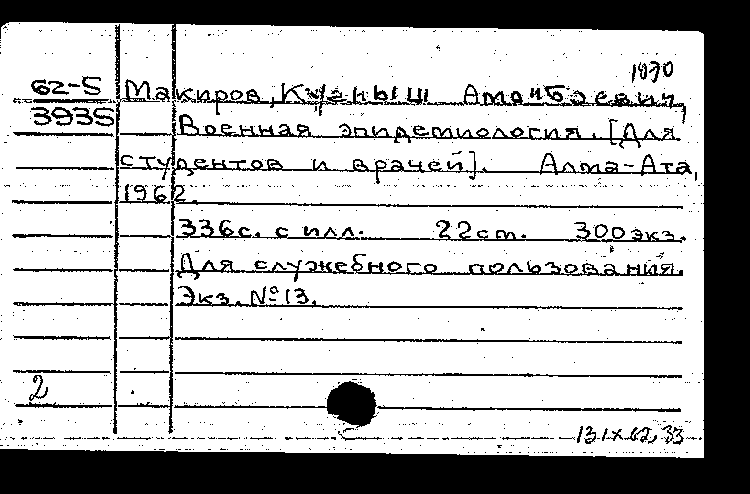 1970
62-5 Макиров, Амантаевич,
3935 Военная эпидемиология. [Для
студентов и врачей]. Алма-Ата,
1962.
336с. с илл. 22cm. 300экз.
Для служебного пользования.
Экз. №13.
2